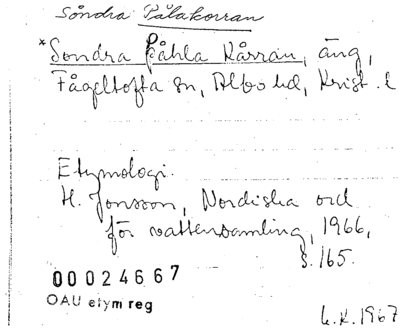 Söndra Pålakorran
*Sondra Påhla Kårran, äng,
Fågeltofta sn, Albo hd, Krist. l
Etymologi.
H. Jonsson, Nordiska ord
för vattensamling, 1966,
s. 165.
00024667
OAU etym reg
1967